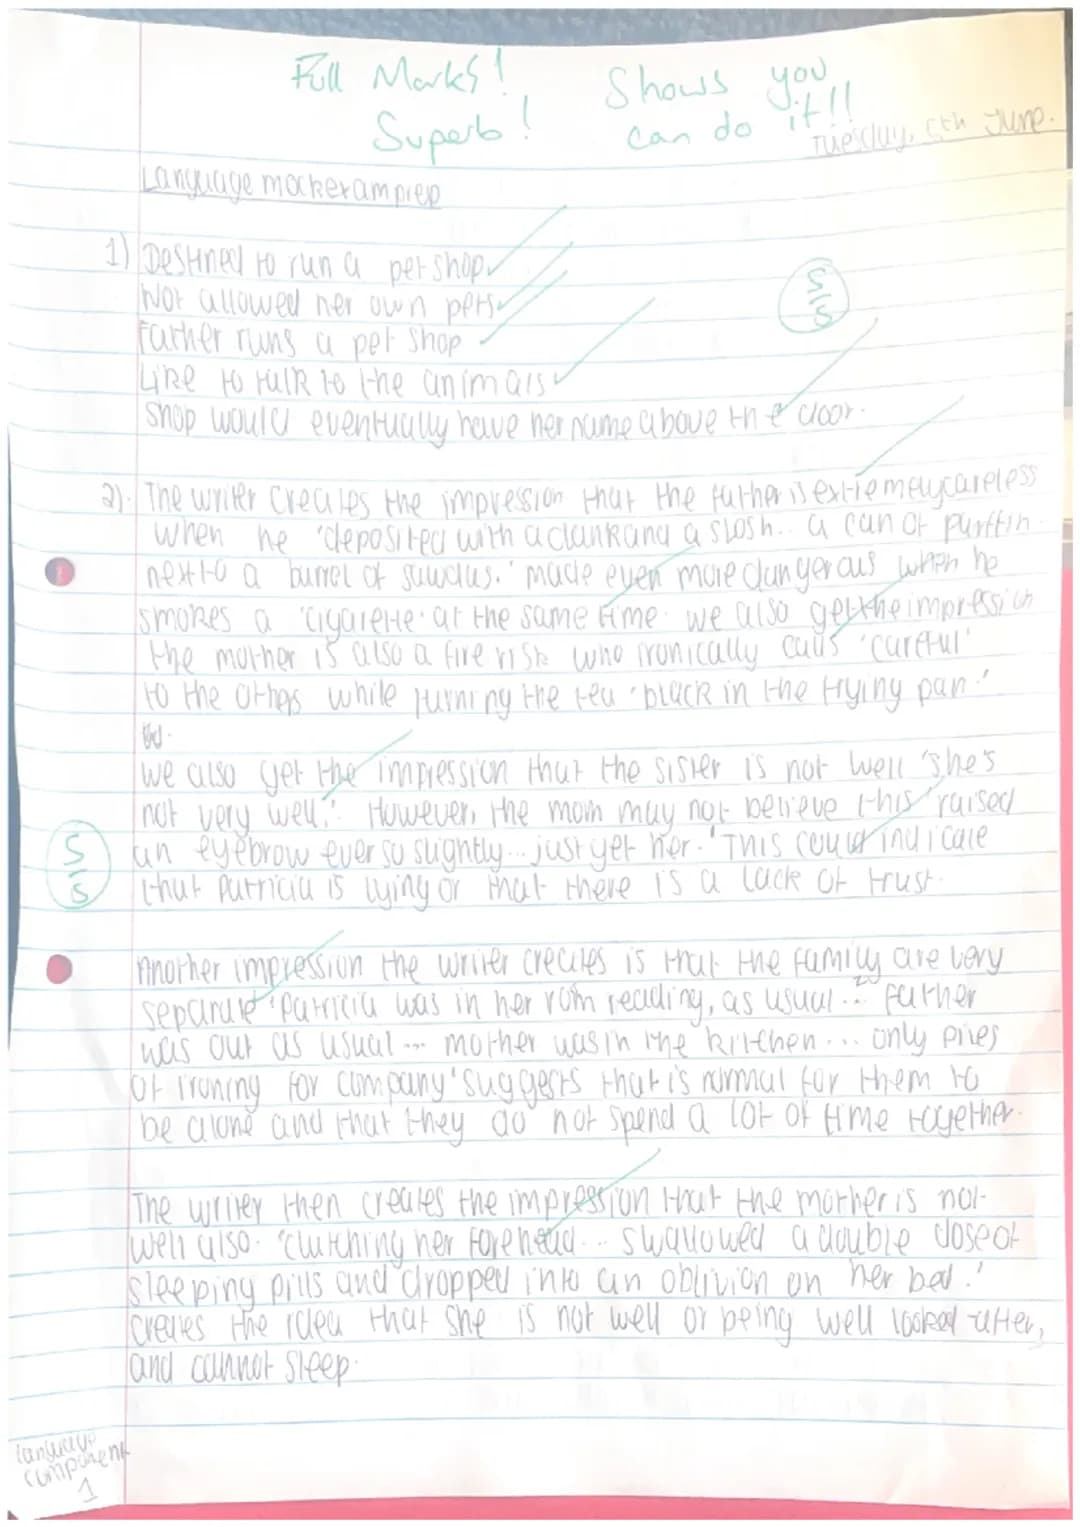 Full Marks! Shows you
Superb! can do it!!
Tuesday, 6th June.
Language mock exam prep
1) Destined to run a pet shop.
Not allowed her own pets
Father runs a pet shop
Like to talk to the animals
Shop would eventually have her name above the door.
5/5
2). The writer creates the impression that the father is extremely careless
when he 'deposited with a clank and a slosh... a can of paraffin
next to a barrel of sawdust.' made even more dangerous when he
smokes a 'cigarette' at the same time. we also get the impression
the mother is also a fire risk who ironically calls 'careful'
to the others while turning the tea 'black in the frying pan.'
We also get the impression that the sister is not well 'she's
not very well.' However, the mom may not believe this 'raised
an eyebrow ever so slightly... just get her.' This could indicate
that Patricia is lying or that there is a lack of trust.
5/5
Another impression the writer creates is that the family are very
separate 'Patricia was in her room reading, as usual... father
was out as usual... mother was in the kitchen... only piles
of ironing for company' suggests that is normal for them to
be alone and that they do not spend a lot of time together.
The writer then creates the impression that the mother is not
well also. 'clutching her forehead... swallowed a double dose of
sleeping pills and dropped into an oblivion on her bed.'
creates the idea that she is not well or being well looked after,
and cannot sleep.
language
component
1